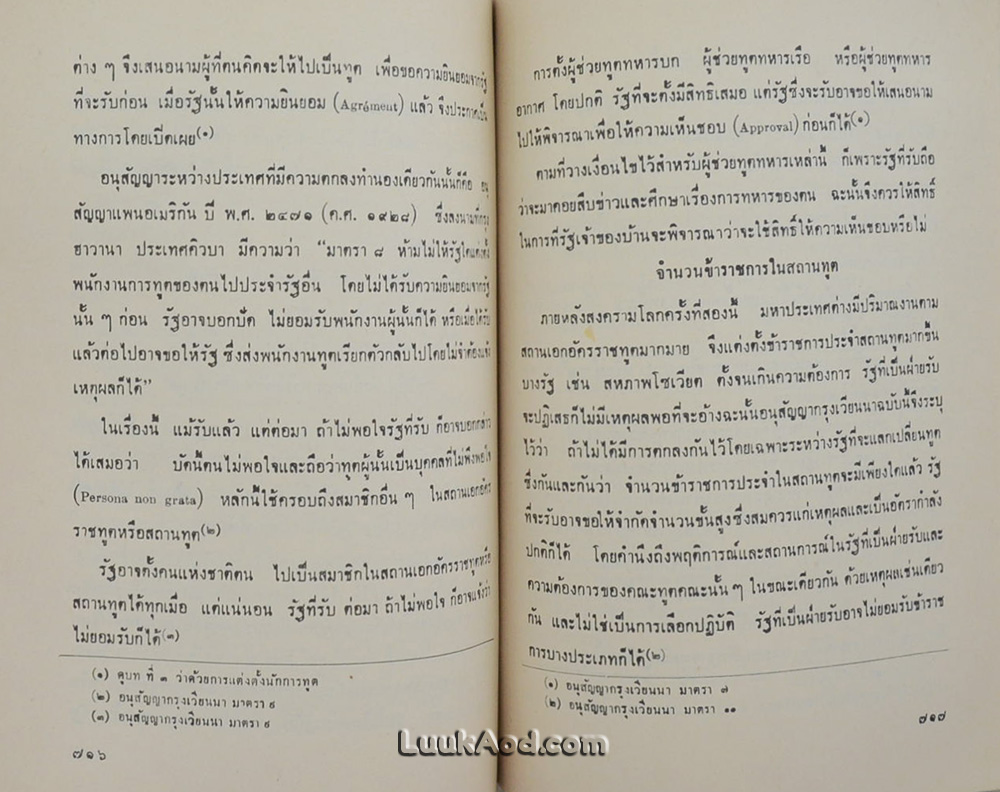 ต่าง ๆ จึงเสนอนามผู้ที่ตนคิดจะให้ไปเป็นทูต เพื่อขอความยินยอมจากรัฐ
ที่จะรับก่อน เมื่อรัฐนั้นให้ความยินยอม (Agrément) แล้ว จึงประกาศเป็น
ทางการโดยเปิดเผย(๑)
อนุสัญญาระหว่างประเทศที่มีความตกลงทำนองเดียวกันนั้นก็คือ อนุ
สัญญาแพนอเมริกัน ปี พ.ศ. ๒๔๗๑ (ค.ศ. ๑๙๒๘) ซึ่งลงนามที่กรุง
ฮาวานา ประเทศคิวบา มีความว่า “มาตรา ๘ ห้ามไม่ให้รัฐใดแต่งตั้ง
พนักงานการทูตของตนไปประจำรัฐอื่น โดยไม่ได้รับความยินยอมจากรัฐ
นั้น ๆ ก่อน รัฐอาจบอกปัด ไม่ยอมรับพนักงานผู้นั้นก็ได้ หรือเมื่อได้รับ
แล้วต่อไปอาจขอให้รัฐ ซึ่งส่งพนักงานทูตเรียกตัวกลับไปโดยไม่จำต้องแจ้ง
เหตุผลก็ได้”
ในเรื่องนี้ แม้รับแล้ว แต่ต่อมา ถ้าไม่พอใจรัฐที่รับ ก็อาจบอกกล่าว
ได้เสมอว่า บัดนี้ตนไม่พอใจและถือว่าทูตผู้นั้นเป็นบุคคลที่ไม่พึงพอใจ
(Persona non grata) หลักนี้ใช้ครอบถึงสมาชิกอื่น ๆ ในสถานเอกอัคร
ราชทูตหรือสถานทูต(๒)
รัฐอาจตั้งคนแห่งชาติตน ไปเป็นสมาชิกในสถานเอกอัครราชทูตหรือ
สถานทูตได้ทุกเมื่อ แต่แน่นอน รัฐที่รับ ต่อมา ถ้าไม่พอใจ ก็อาจแจ้งว่า
ไม่ยอมรับก็ได้(๓)
(๑) ดูบท ที่ ๓ ว่าด้วยการแต่งตั้งนักการทูต
(๒) อนุสัญญากรุงเวียนนา มาตรา ๙
(๓) อนุสัญญากรุงเวียนนา มาตรา ๙
๗๑๖
การตั้งผู้ช่วยทูตทหารบก ผู้ช่วยทูตทหารเรือ หรือผู้ช่วยทูตทหาร
อากาศ โดยปกติ รัฐที่จะตั้งมีสิทธิเสมอ แต่รัฐซึ่งจะรับอาจขอให้เสนอนาม
ไปให้พิจารณาเพื่อให้ความเห็นชอบ (Approval) ก่อนก็ได้(๑)
ตามที่วางเงื่อนไขไว้สำหรับผู้ช่วยทูตทหารเหล่านี้ ก็เพราะรัฐที่รับถือ
ว่าจะมาคอยสืบข่าวและศึกษาเรื่องการทหารของตน ฉะนั้นจึงควรให้สิทธิ์
ในการที่รัฐเจ้าของบ้านจะพิจารณาว่าจะใช้สิทธิ์ให้ความเห็นชอบหรือไม่
จำนวนข้าราชการในสถานทูต
ภายหลังสงครามโลกครั้งที่สองนี้ มหาประเทศต่างมีปริมาณงานตาม
สถานเอกอัครราชทูตมากมาย จึงแต่งตั้งข้าราชการประจำสถานทูตมากขึ้น
บางรัฐ เช่น สหภาพโซเวียต ตั้งจนเกินความต้องการ รัฐที่เป็นฝ่ายรับ
จะปฏิเสธก็ไม่มีเหตุผลพอที่จะอ้างฉะนั้นอนุสัญญากรุงเวียนนาฉบับนี้จึงระบุ
ไว้ว่า ถ้าไม่ได้มีการตกลงกันไว้โดยเฉพาะระหว่างรัฐที่จะแลกเปลี่ยนทูต
ซึ่งกันและกันว่า จำนวนข้าราชการประจำในสถานทูตจะมีเพียงใดแล้ว รัฐ
ที่จะรับอาจขอให้จำกัดจำนวนขั้นสูงซึ่งสมควรแก่เหตุผลและเป็นอัตรากำลัง
ปกติก็ได้ โดยคำนึงถึงพฤติการณ์และสถานการณ์ในรัฐที่เป็นฝ่ายรับและ
ความต้องการของคณะทูตคณะนั้น ๆ ในขณะเดียวกัน ด้วยเหตุผลเช่นเดียว
กัน และไม่ใช่เป็นการเลือกปฏิบัติ รัฐที่เป็นฝ่ายรับอาจไม่ยอมรับข้าราช
การบางประเภทก็ได้(๒)
(๑) อนุสัญญากรุงเวียนนา มาตรา ๗
(๒) อนุสัญญากรุงเวียนนา มาตรา ๑๑
๗๑๗
LuukAod.com